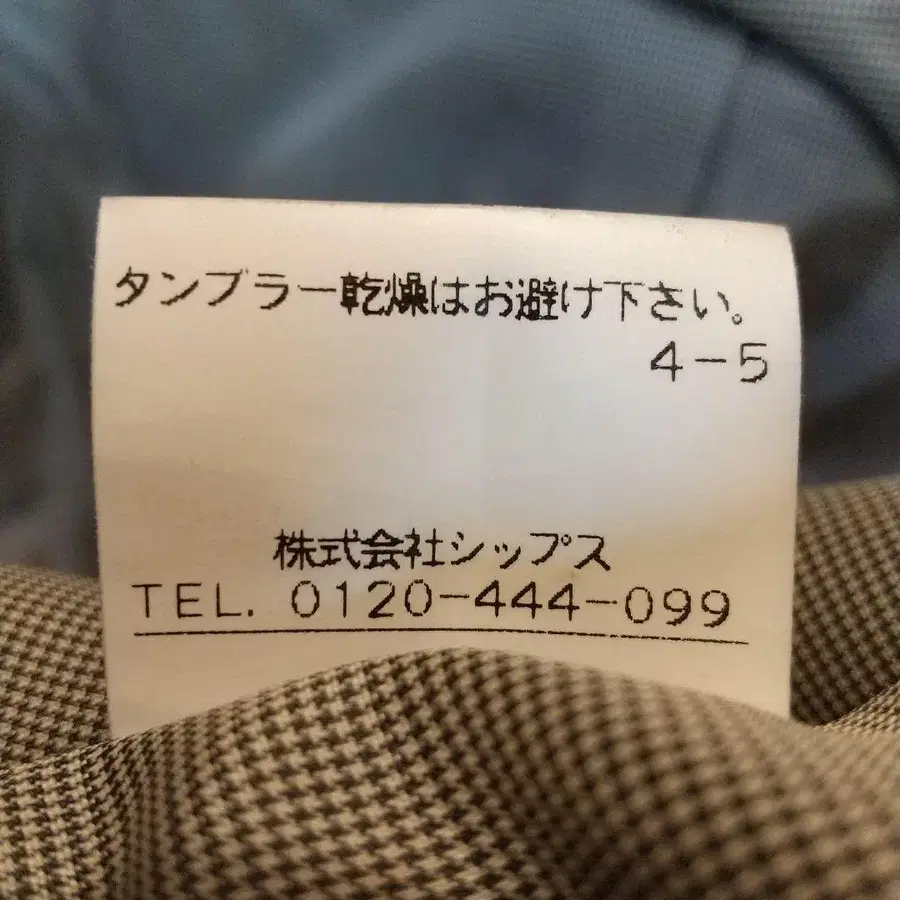 タンブラー乾燥はお避け下さい。
4-5
株式会社シップス
TEL. 0120-444-099